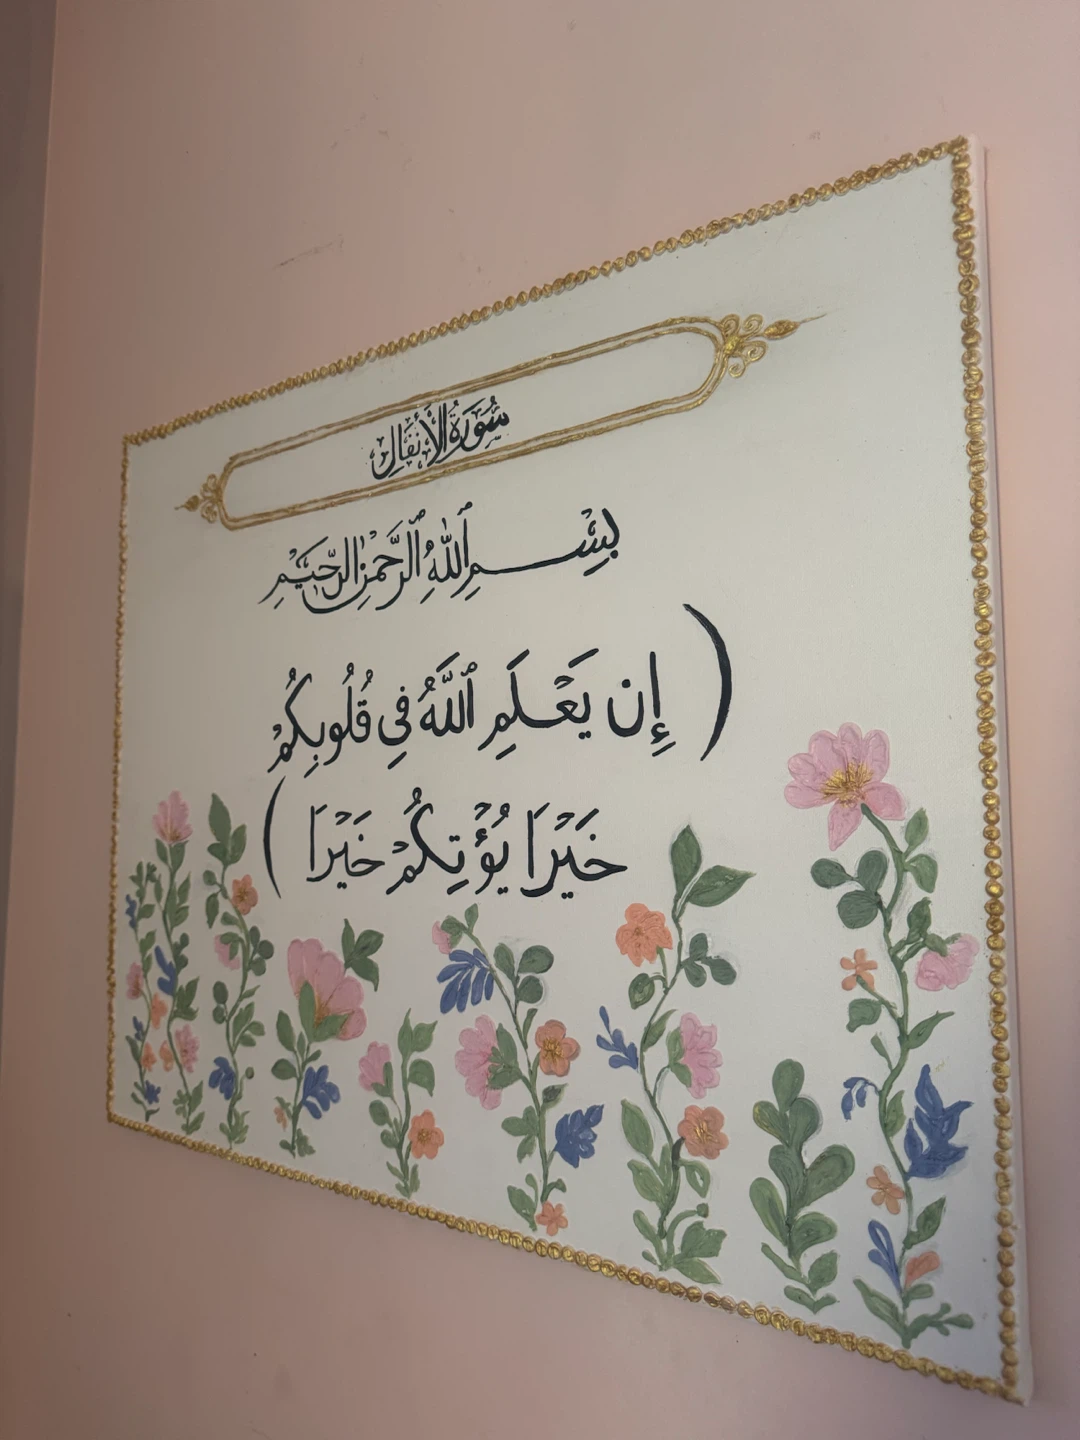 سُورَةُ الأَنفَالِ
بِسْمِ ٱللَّهِ ٱلرَّحْمَٰنِ الرَّحِيمِ
( إِن يَعْلَمِ ٱللَّهُ فِي قُلُوبِكُمْ
خَيْرًا يُؤْتِكُمْ خَيْرًا )